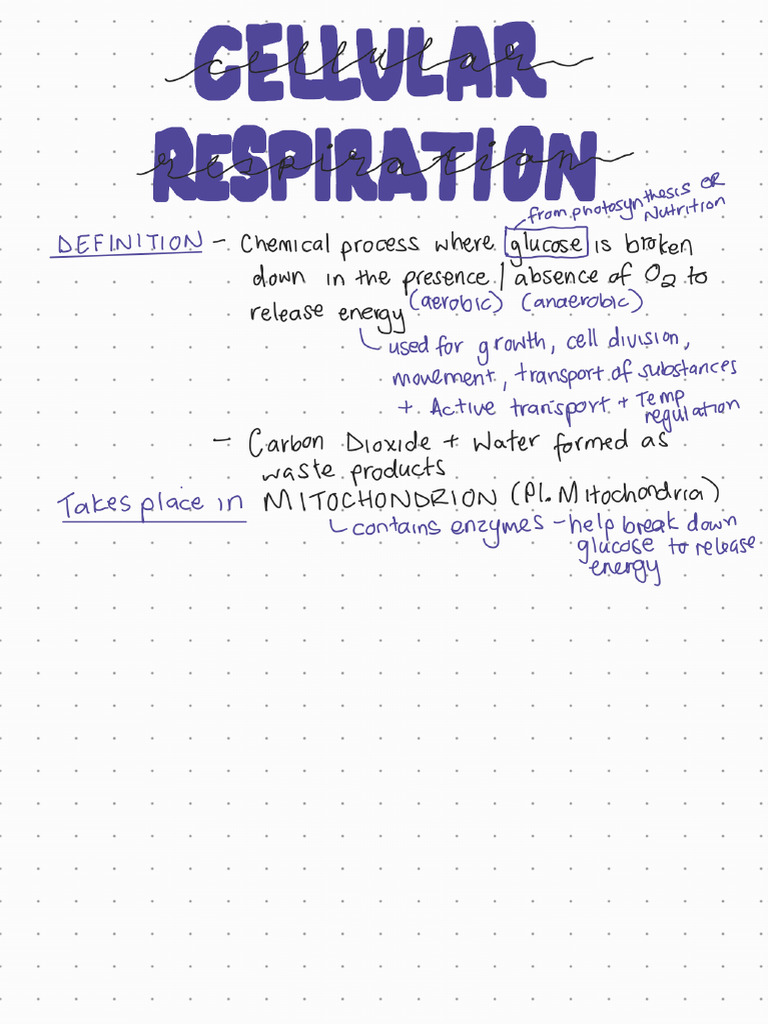 CELLULAR
cellular
RESPIRATION
respiration
from photosynthesis OR
Nutrition
DEFINITION - Chemical process where glucose is broken
down in the presence / absence of O2 to
release energy (aerobic) (anaerobic)
used for growth, cell division,
movement, transport of substances
+ Active transport + Temp
regulation
- Carbon Dioxide + Water formed as
waste products
Takes place in MITOCHONDRION (Pl. Mitochondria)
contains enzymes - help break down
glucose to release
energy